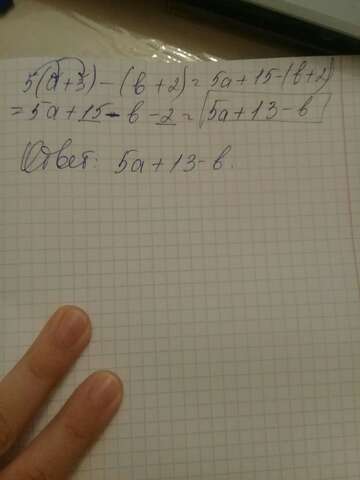 5(a+3)-(в+2)=5a+15-(в+2)
=5a+15-в-2=5a+13-в
Ответ: 5a+13-в.